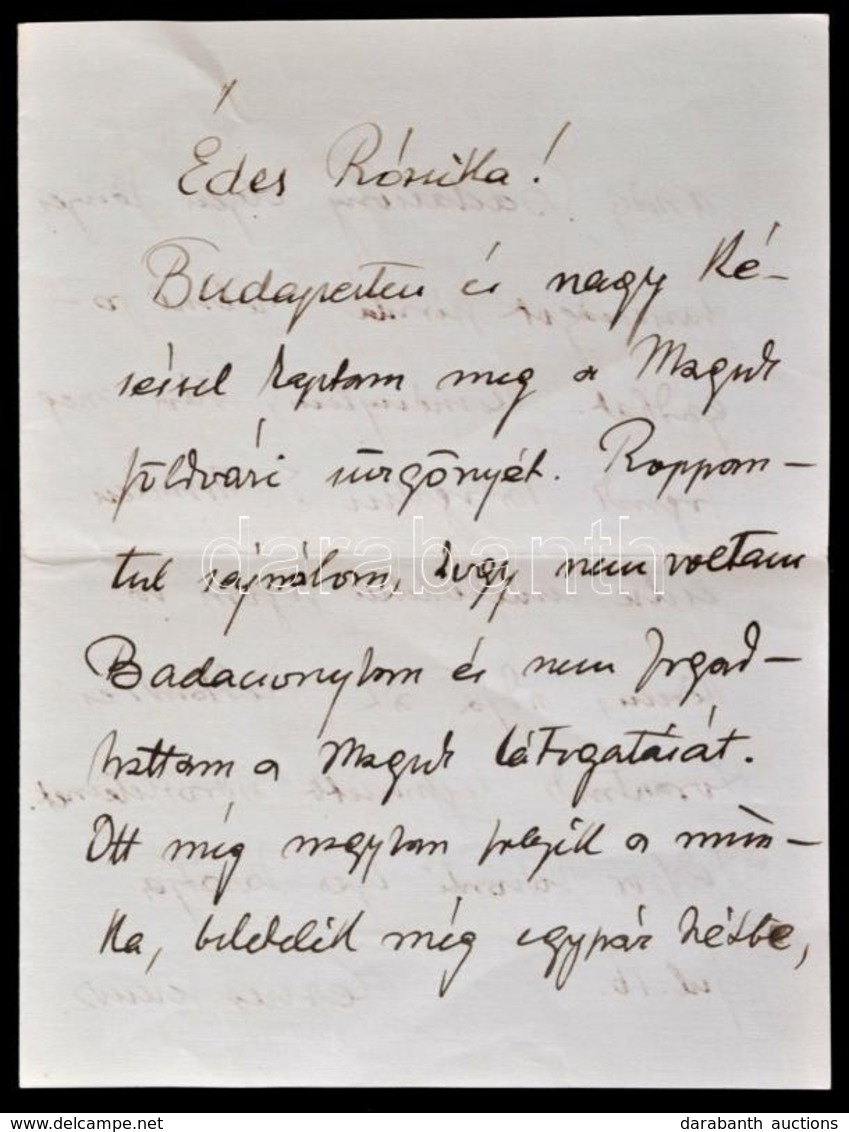 Édes Rózsika!
Budapesten és nagy ké-
séssel kaptam meg a Maguk
földvári sürgönyét. Roppan-
tul sajnálom, hogy nem voltam
Badacsonyban és nem fogad-
hattam a Maguk látogatását.
Ott még nagyban folyik a mun-
ka, beletelik még egypár hétbe,
darabanth
darabanth auctions